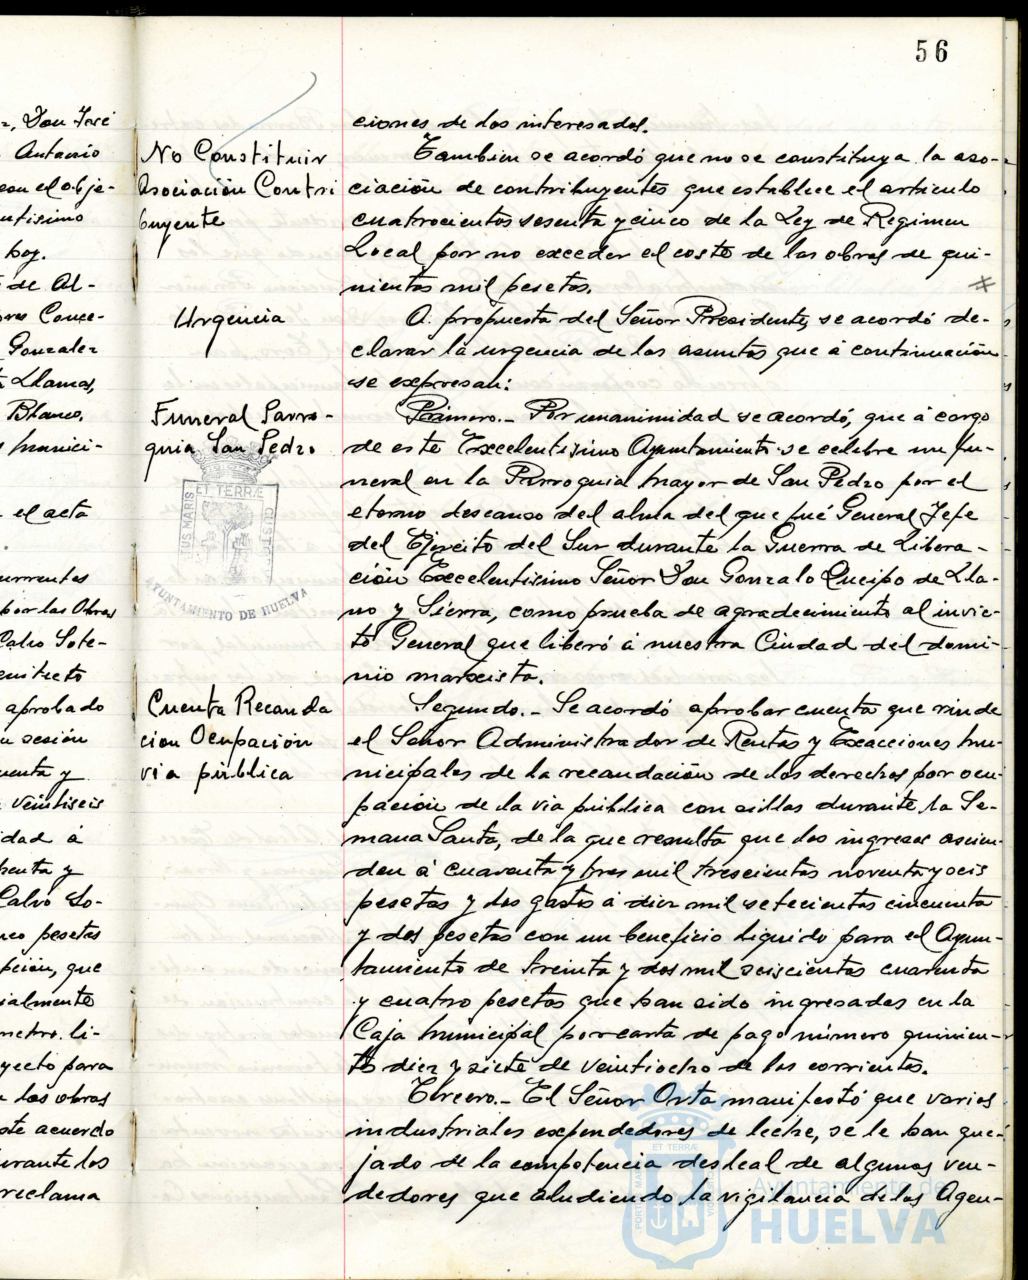 56
z, Don José
Antonio
con el obje-
ntisimo
hoy.
de Al-
ores Conce-
Gonzalez
Llamas,
Blanco,
munici-
el acta
urrentes
por las Obras
Calvo Sote-
quitecto
aprobado
sesión
uenta y
veintiseis
dad á
henta y
Calvo So-
nco pesetas
pción, que
ialmente
metro li-
yecto para
las obras
ste acuerdo
urante los
reclama
ciones de los interesados.
No Constituir
Asociación Contri
buyente
Tambien se acordó que no se constituya la aso-
ciación de contribuyentes que establece el articulo
cuatrocientos sesenta y cinco de la Ley de Regimen
Local por no exceder el costo de las obras de qui-
nientas mil pesetas.
Urgencia
A propuesta del Señor Presidente, se acordó de-
clarar la urgencia de los asuntos que á continuación
se expresan:
Funeral Parro-
quia San Pedro
Primero.- Por unanimidad se acordó, que á cargo
de este Excelentisimo Ayuntamiento se celebre un fu-
neral en la Parroquia mayor de San Pedro por el
eterno descanso del alma del que fué General Jefe
del Ejército del Sur durante la Guerra de Libera-
ción Excelentisimo Señor Don Gonzalo Queipo de Lla-
no y Sierra, como prueba de agradecimiento al invic-
to General que liberó á nuestra Ciudad del domi-
nio marxista.
Cuenta Recauda
cion Ocupación
via pública
Segundo.- Se acordó aprobar cuenta que rinde
el Señor Administrador de Rentas y Exacciones mu-
nicipales de la recaudación de los derechos por ocu-
pación de la via pública con sillas durante la Se-
mana Santa, de la que resulta que los ingresos ascien-
den á cuarenta y tres mil trescientas noventa y seis
pesetas y los gastos á diez mil setecientas cincuenta
y dos pesetas con un beneficio liquido para el Ayun-
tamiento de treinta y dos mil seiscientas cuarenta
y cuatro pesetas que han sido ingresadas en la
Caja municipal por carta de pago número quinien-
tos diez y siete de veintiocho de los corrientes.
Tercero.- El Señor Orta manifestó que varios
industriales expendedores de leche, se le han que-
jado de la competencia desleal de algunos ven-
dedores que aludiendo la vigilancia de los Agen-
ET TERRÆ
AYUNTAMIENTO DE HUELVA
ET TERRÆ
Ayuntamiento de
HUELVA